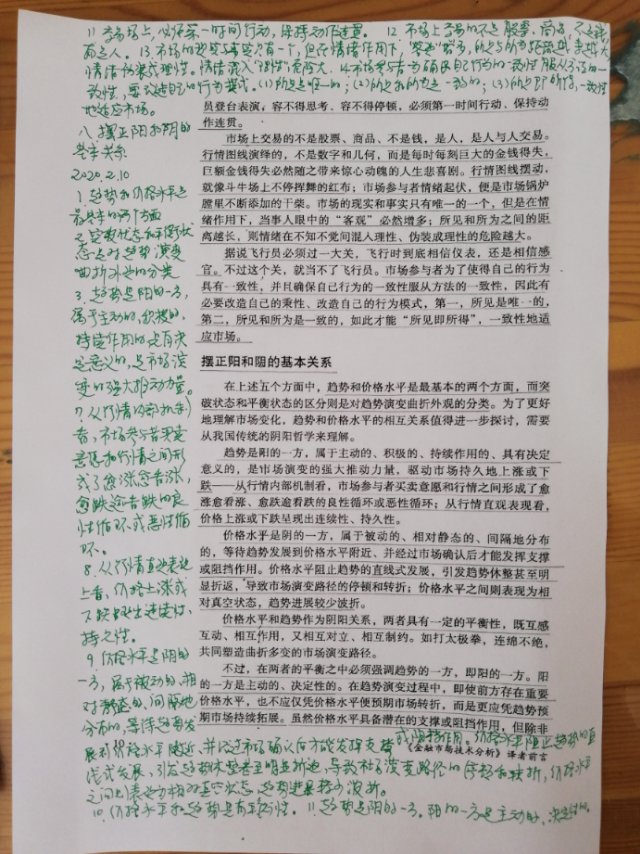 11. 交易场上,必怀第一时间行动,保持动作连贯。 12. 市场上交易的不是股票、商品、不是钱,
而是人。13. 市场的现实和事实只有一个,但在情绪作用下,"客观"增多,所见与所为距离越大,
情绪伪装成理性。
致性,要改造自己的行为模式。(1)所见是唯一的;(2)所见和所为是一致的;(3)所见即所得,一致性
地适应市场。
八、摆正阳和阴的
基本关系
2020.2.10
1. 趋势和价格水平是
最基本的两个方面
2. 突破状态和平衡状
态是对趋势演变
曲折外观的分类
3. 趋势是阳的一方,
属于主动的,积极的,
持续作用的,具有决
定意义的,是市场演
变的强大推动力量。
7. 从行情内部机制
看,市场参与者买卖
意愿和行情之间形
成了愈涨愈看涨,
愈跌愈看跌的良
性循环或恶性循
环。
8. 从行情直观表现
上看,价格上涨或
下跌呈现出连续性、
持久性。
9. 价格水平是阴的
一方,属于被动的,相
对静态的,间隔地
分布的,等待趋势发
展到价格水平附近,并经过市场确认后才能发挥支撑
或阻挡作用。价格水平阻止趋势的直
线式发展,引发趋势休整甚至明显折返,导致市场演变路径的停顿和转折,价格水平
之间则表现为相对真空状态,趋势进展较少波折。
10. 价格水平和趋势具有平衡性。 11. 趋势是阳的一方。阳的一方是主动的、决定性的。
员登台表演,容不得思考、容不得停顿,必须第一时间行动、保持动
作连贯。
市场上交易的不是股票、商品、不是钱,是人,是人与人交易。
行情图线演绎的,不是数字和几何,而是每时每刻巨大的金钱得失,
巨额金钱得失必然随之带来惊心动魄的人生悲喜剧。行情图线摆动,
就像斗牛场上不停挥舞的红布;市场参与者情绪起伏,便是市场锅炉
膛里不断添加的干柴。市场的现实和事实只有唯一的一个,但是在情
绪作用下,当事人眼中的“客观”必然增多;所见和所为之间的距
离越长,则情绪在不知不觉间混入理性、伪装成理性的危险越大。
据说飞行员必须过一大关,飞行时到底相信仪表,还是相信感
官。不过这个关,就当不了飞行员。市场参与者为了使得自己的行为
具有一致性,并且确保自己行为的一致性服从方法的一致性,因此有
必要改造自己的秉性、改造自己的行为模式,第一,所见是唯一的,
第二,所见和所为是一致的,如此才能“所见即所得”,一致性地适
应市场。
摆正阳和阴的基本关系
在上述五个方面中,趋势和价格水平是最基本的两个方面,而突
破状态和平衡状态的区分则是对趋势演变曲折外观的分类。为了更好
地理解市场变化,趋势和价格水平的相互关系值得进一步探讨,需要
从我国传统的阴阳哲学来理解。
趋势是阳的一方,属于主动的、积极的、持续作用的、具有决定
意义的,是市场演变的强大推动力量,驱动市场持久地上涨或下
跌——从行情内部机制看,市场参与者买卖意愿和行情之间形成了愈
涨愈看涨、愈跌愈看跌的良性循环或恶性循环;从行情直观表现看,
价格上涨或下跌呈现出连续性、持久性。
价格水平是阴的一方,属于被动的、相对静态的、间隔地分布
的,等待趋势发展到价格水平附近、并经过市场确认后才能发挥支撑
或阻挡作用。价格水平阻止趋势的直线式发展,引发趋势休整甚至明
显折返,导致市场演变路径的停顿和转折;价格水平之间则表现为相
对真空状态,趋势进展较少波折。
价格水平和趋势作为阴阳关系,两者具有一定的平衡性,既互感
互动、相互作用,又相互对立、相互制约。如打太极拳,连绵不绝,
共同塑造曲折多变的市场演变路径。
不过,在两者的平衡之中必须强调趋势的一方,即阳的一方。阳
的一方是主动的、决定性的。在趋势演变过程中,即使前方存在重要
价格水平,也不应仅凭价格水平便预期市场转折,而是更应凭趋势预
期市场持续拓展。虽然价格水平具备潜在的支撑或阻挡作用,但除非
《金融市场技术分析》译者前言